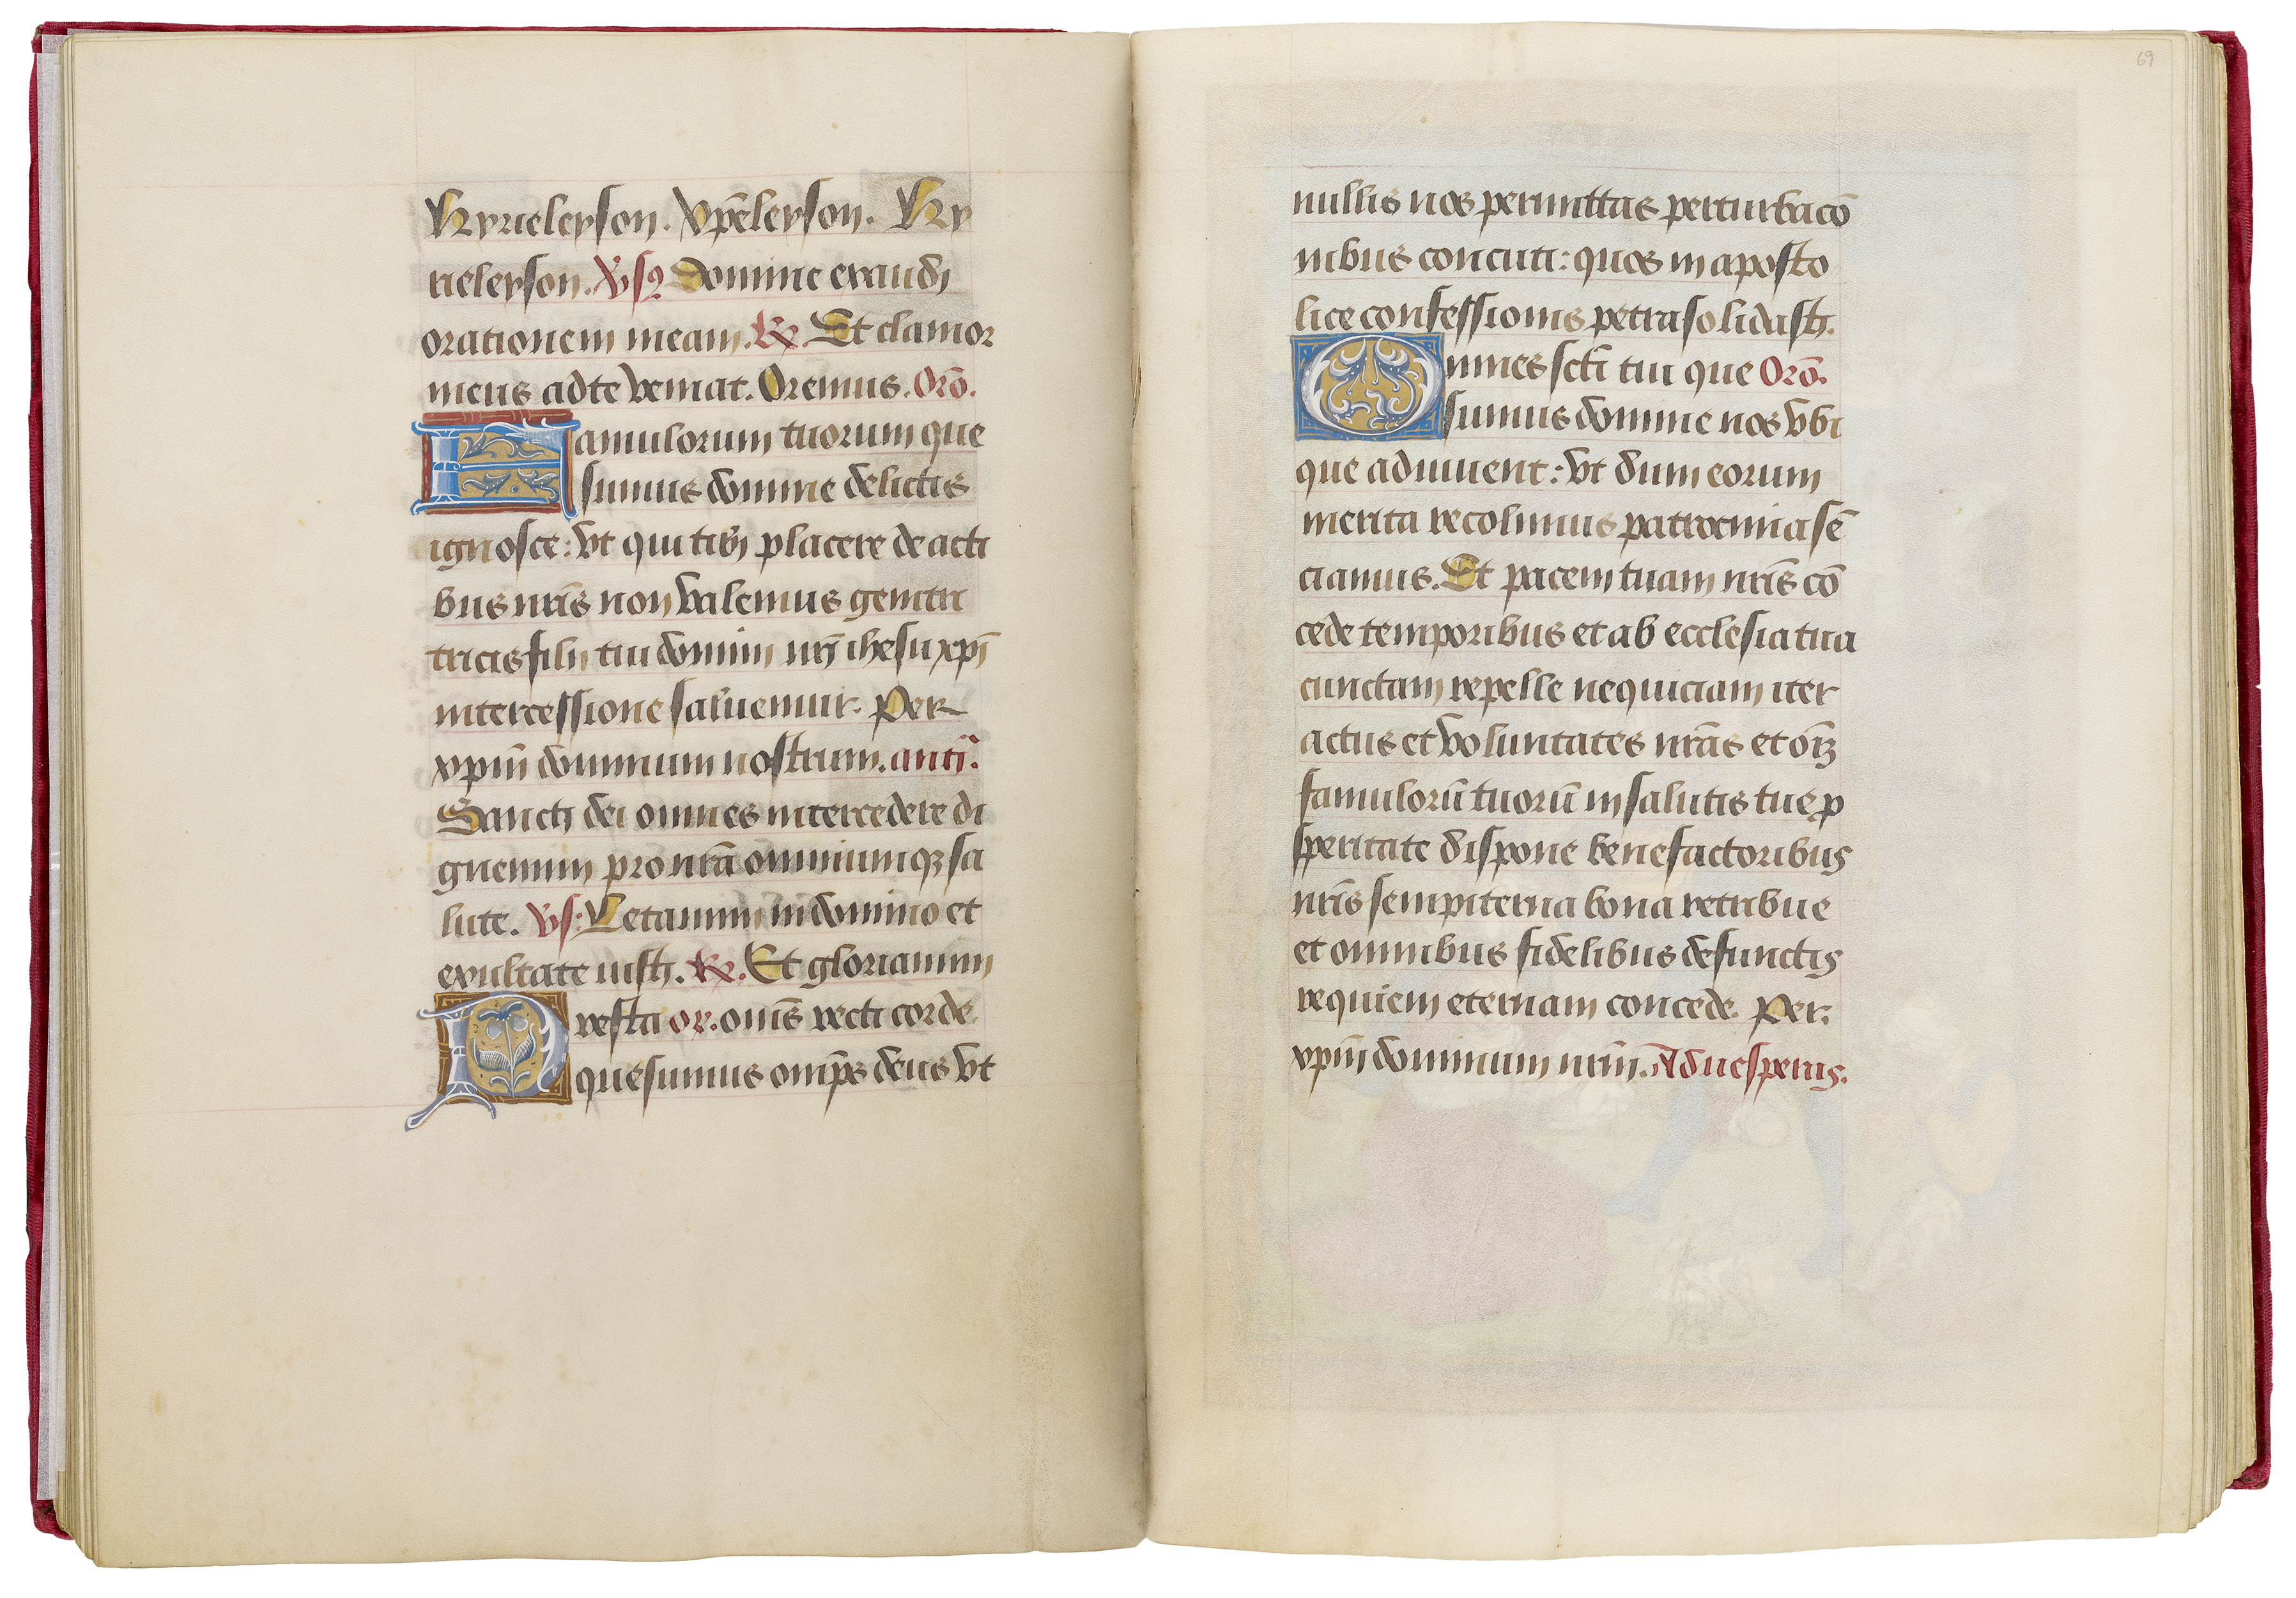 Kyrieleyson. Xp̄eleyson. Ky
rieleyson. V̄sꝰ Domine exaudi
orationem meam. ℟. Et clamor
meus ad te veniat. Oremus. Orō.
Famulorum tuorum que
sumus domine delictis
ignosce: vt qui tibi placere de acti
bus nr̄is non valemus genitri
tricis filij tui domini nr̄i ihesu xp̄i
intercessione saluemur. Per
xpm̄ dominum nostrum. anti.
Sancti dei omnes intercedere di
gnemini pro nr̄a omniumqꝫ sa
lute. Vs: Letamini in domino et
exultate iusti. ℟. Et gloriamini
Presta or. oms̄ recti corde.
quesumus omp̄s deus vt
69
nullis nos permittas perturbacō
nibus concuti: quos in aposto
lice confessionis petra solidasti.
Omnes sctī tui que Orō.
sumus domine nos vbi
que adiuuent: vt dum eorum
merita recolimus patrocinia sē
ciamus. Et pacem tuam nr̄is cō
cede temporibus et ab ecclesia tua
cunctam repelle nequiciam iter
actus et voluntates nr̄as et om̄
famulorū tuorū in salutis tue ꝓ
speritate dispone benefactoribus
nr̄is sempiterna bona retribue
et omnibus fidelibus defunctis
requiem eternam concede. Per.
xpm̄ dominum nrm̄. Ad vesperas.